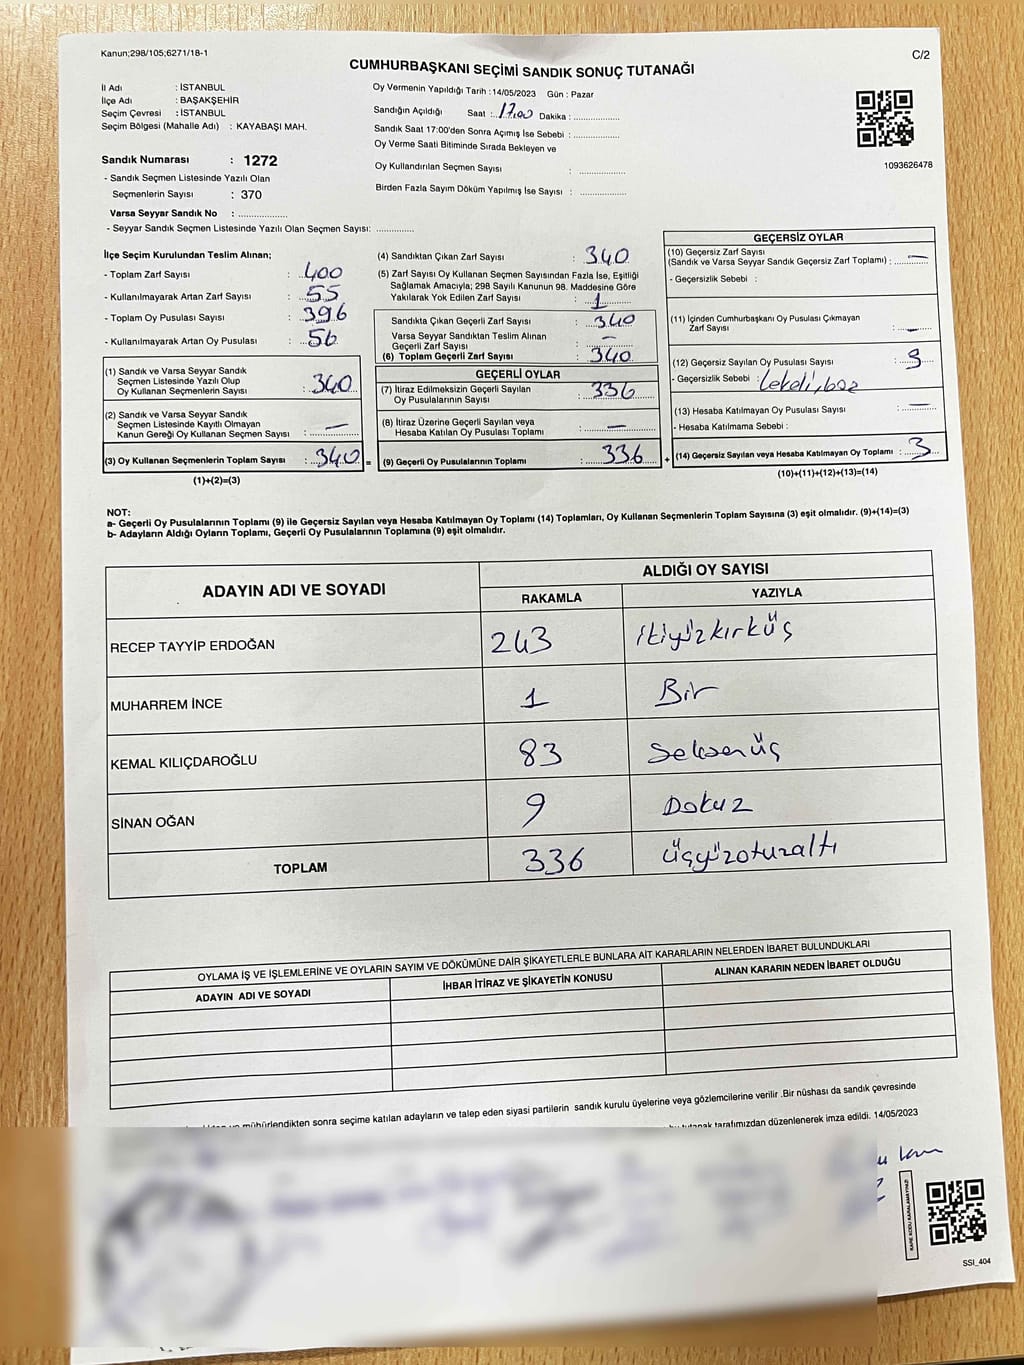 Kanun;298/105;6271/18-1
C/2
CUMHURBAŞKANI SEÇİMİ SANDIK SONUÇ TUTANAĞI
İl Adı : İSTANBUL
İlçe Adı : BAŞAKŞEHİR
Seçim Çevresi : İSTANBUL
Seçim Bölgesi (Mahalle Adı) : KAYABAŞI MAH.
Sandık Numarası : 1272
- Sandık Seçmen Listesinde Yazılı Olan
Seçmenlerin Sayısı : 370
Varsa Seyyar Sandık No : ................
- Seyyar Sandık Seçmen Listesinde Yazılı Olan Seçmen Sayısı: ............
Oy Vermenin Yapıldığı Tarih :14/05/2023 Gün : Pazar
Sandığın Açıldığı Saat :..17.00 Dakika : ...............
Sandık Saat 17:00'den Sonra Açımış İse Sebebi : ...............
Oy Verme Saati Bitiminde Sırada Bekleyen ve
Oy Kullandırılan Seçmen Sayısı : ...............
Birden Fazla Sayım Döküm Yapılmış İse Sayısı : ...............
1093626478
İlçe Seçim Kurulundan Teslim Alınan;
- Toplam Zarf Sayısı : 400
- Kullanılmayarak Artan Zarf Sayısı : 55
- Toplam Oy Pusulası Sayısı : 396
- Kullanılmayarak Artan Oy Pusulası : 56
(1) Sandık ve Varsa Seyyar Sandık
Seçmen Listesinde Yazılı Olup
Oy Kullanan Seçmenlerin Sayısı : 340
(2) Sandık ve Varsa Seyyar Sandık
Seçmen Listesinde Kayıtlı Olmayan
Kanun Gereği Oy Kullanan Seçmen Sayısı : —
(3) Oy Kullanan Seçmenlerin Toplam Sayısı : 340 =
(1)+(2)=(3)
(4) Sandıktan Çıkan Zarf Sayısı : 340
(5) Zarf Sayısı Oy Kullanan Seçmen Sayısından Fazla İse, Eşitliği
Sağlamak Amacıyla; 298 Sayılı Kanunun 98. Maddesine Göre
Yakılarak Yok Edilen Zarf Sayısı : 1
Sandıkta Çıkan Geçerli Zarf Sayısı : 340
Varsa Seyyar Sandıktan Teslim Alınan
Geçerli Zarf Sayısı : —
(6) Toplam Geçerli Zarf Sayısı : 340
GEÇERLİ OYLAR
(7) İtiraz Edilmeksizin Geçerli Sayılan
Oy Pusulalarının Sayısı : 336
(8) İtiraz Üzerine Geçerli Sayılan veya
Hesaba Katılan Oy Pusulası Toplamı : —
(9) Geçerli Oy Pusulalarının Toplamı : 336 +
GEÇERSİZ OYLAR
(10) Geçersiz Zarf Sayısı
(Sandık ve Varsa Seyyar Sandık Geçersiz Zarf Toplamı) : —
- Geçersizlik Sebebi :
(11) İçinden Cumhurbaşkanı Oy Pusulası Çıkmayan
Zarf Sayısı : —
(12) Geçersiz Sayılan Oy Pusulası Sayısı : 3
- Geçersizlik Sebebi : Lekeli,
(13) Hesaba Katılmayan Oy Pusulası Sayısı : —
- Hesaba Katılmama Sebebi :
(14) Geçersiz Sayılan veya Hesaba Katılmayan Oy Toplamı : 3
(10)+(11)+(12)+(13)=(14)
NOT:
a- Geçerli Oy Pusulalarının Toplamı (9) ile Geçersiz Sayılan veya Hesaba Katılmayan Oy Toplamı (14) Toplamları, Oy Kullanan Seçmenlerin Toplam Sayısına (3) eşit olmalıdır. (9)+(14)=(3)
b- Adayların Aldığı Oyların Toplamı, Geçerli Oy Pusulalarının Toplamına (9) eşit olmalıdır.
ADAYIN ADI VE SOYADI ALDIĞI OY SAYISI
RAKAMLA YAZIYLA
RECEP TAYYİP ERDOĞAN 243 İkiyüzkırküç
MUHARREM İNCE 1 Bir
KEMAL KILIÇDAROĞLU 83 Seksenüç
SİNAN OĞAN 9 Dokuz
TOPLAM 336 üçyüzotuzaltı
OYLAMA İŞ VE İŞLEMLERİNE VE OYLARIN SAYIM VE DÖKÜMÜNE DAİR ŞİKAYETLERLE BUNLARA AİT KARARLARIN NELERDEN İBARET BULUNDUKLARI
ADAYIN ADI VE SOYADI İHBAR İTİRAZ VE ŞİKAYETİN KONUSU ALINAN KARARIN NEDEN İBARET OLDUĞU
mühürlendikten sonra seçime katılan adayların ve talep eden siyasi partilerin sandık kurulu üyelerine veya gözlemcilerine verilir .Bir nüshası da sandık çevresinde
tutanak tarafımızdan düzenlenerek imza edildi. 14/05/2023
KARE KODU KARALAMAYINIZ!
SSI_404